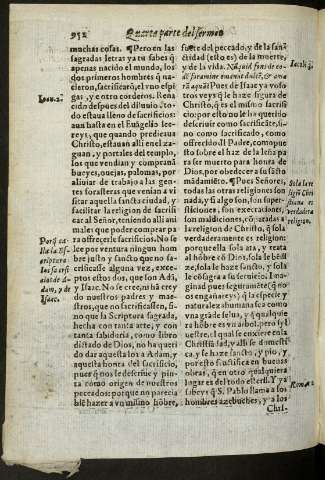 952
Quarta parte del sermon
muchas cosas. ¶ Pero en las
sagradas letras ya tu sabes q̃
apenas nacido el mundo, los
dos primeros hombres q̃ na-
cieron, sacrificarõ, el vno espi
gas, y el otro corderos. Llena
recien despues del diluuio: to-
do estaua lleno de sacrificios:
aun hasta en el Euãgelio lee-
reys, que quando predicaua
Christo, estauan alli en el za-
guan, y portales del templo,
los que vendian y comprauã
bueyes, ouejas, palomas, por
aliuiar de trabajo a las gen-
tes forasteras que venian a vi
sitar aquella sancta ciudad, y
facilitar la religion de sacrifi
car al Señor, teniendo alli ani
males que poder comprar pa
ra ofrecerle sacrificios. No se
lee por ventura ningun hom
bre justo y sancto que no sa-
crificasse alguna vez, exce-
ptos estos dos, que son Adã,
y Isaac. No se cree, ni hã crey
do nuestros padres y mae-
stros, que no sacrificassen, si-
no que la Scriptura sagrada,
hecha con tanto arte, y con
tanta sabiduria, como libro
dictado de Dios, no ha queri
do dar aquesta loa a Adam, y
aquesta honra del sacrificio,
pues q̃ nos le descriue y pin-
ta como origen de nuestros
peccados: porque no parecia
biẽ hazer a vn mismo hõbre,
Ioan. 2.
Porq̃ ca
lla la Es-
criptura
los sacrifi
cios de A-
dam, y de
Isaac.
fuete del peccado, y de la sanc-
tidad (esto es) de la muerte,
y de la vida.
Pues de Isaac y vosso-
tros veys q̃ le haze figura de
Christo, q̃ es el mismo sacri-
ficio: no como sacrificãte, si-
no como sacrificado, como
offrecido del Padre, compue-
sto sobre el haz de la leña pa-
ra ser muerto para honra de
Dios, por obedecer a su sãcto
mãdamiẽto. ¶ Pues Señores,
todas las otras religiones son
nada, y si algo son, son super-
sticiones, son execraciones,
son maldiciones, cõparadas a
la religion de Christo, q̃ sola
verdaderamente es religion:
porque ella sola ata, y reata
al hõbre cõ Dios, sola le bẽdi-
ze, sola le haze sancto, y sola
le cõsagra a su seruicio. Imagi-
nad pues seguramẽte (q̃ no
os engañareys) q̃ la especie y
naturaleza humana sea como
vna grãde selua, y q̃ qualquie
ra hõbre es vn arbol, pero syl
uestre, el qual se enxiere en la
Christiãdad, y alli se domesti
ca, y se haze sancto, y pio, y
por esto fructifica en buenas
obras, q̃ en otro qualquiera
lugar es del todo esteril. Y ya
sabeys q̃ S. Pablo llama a los
hombres azebuches, y a los
Sola la re
ligiõ Chri
stiana es
verdadera
religion.
Roma.
Chri-